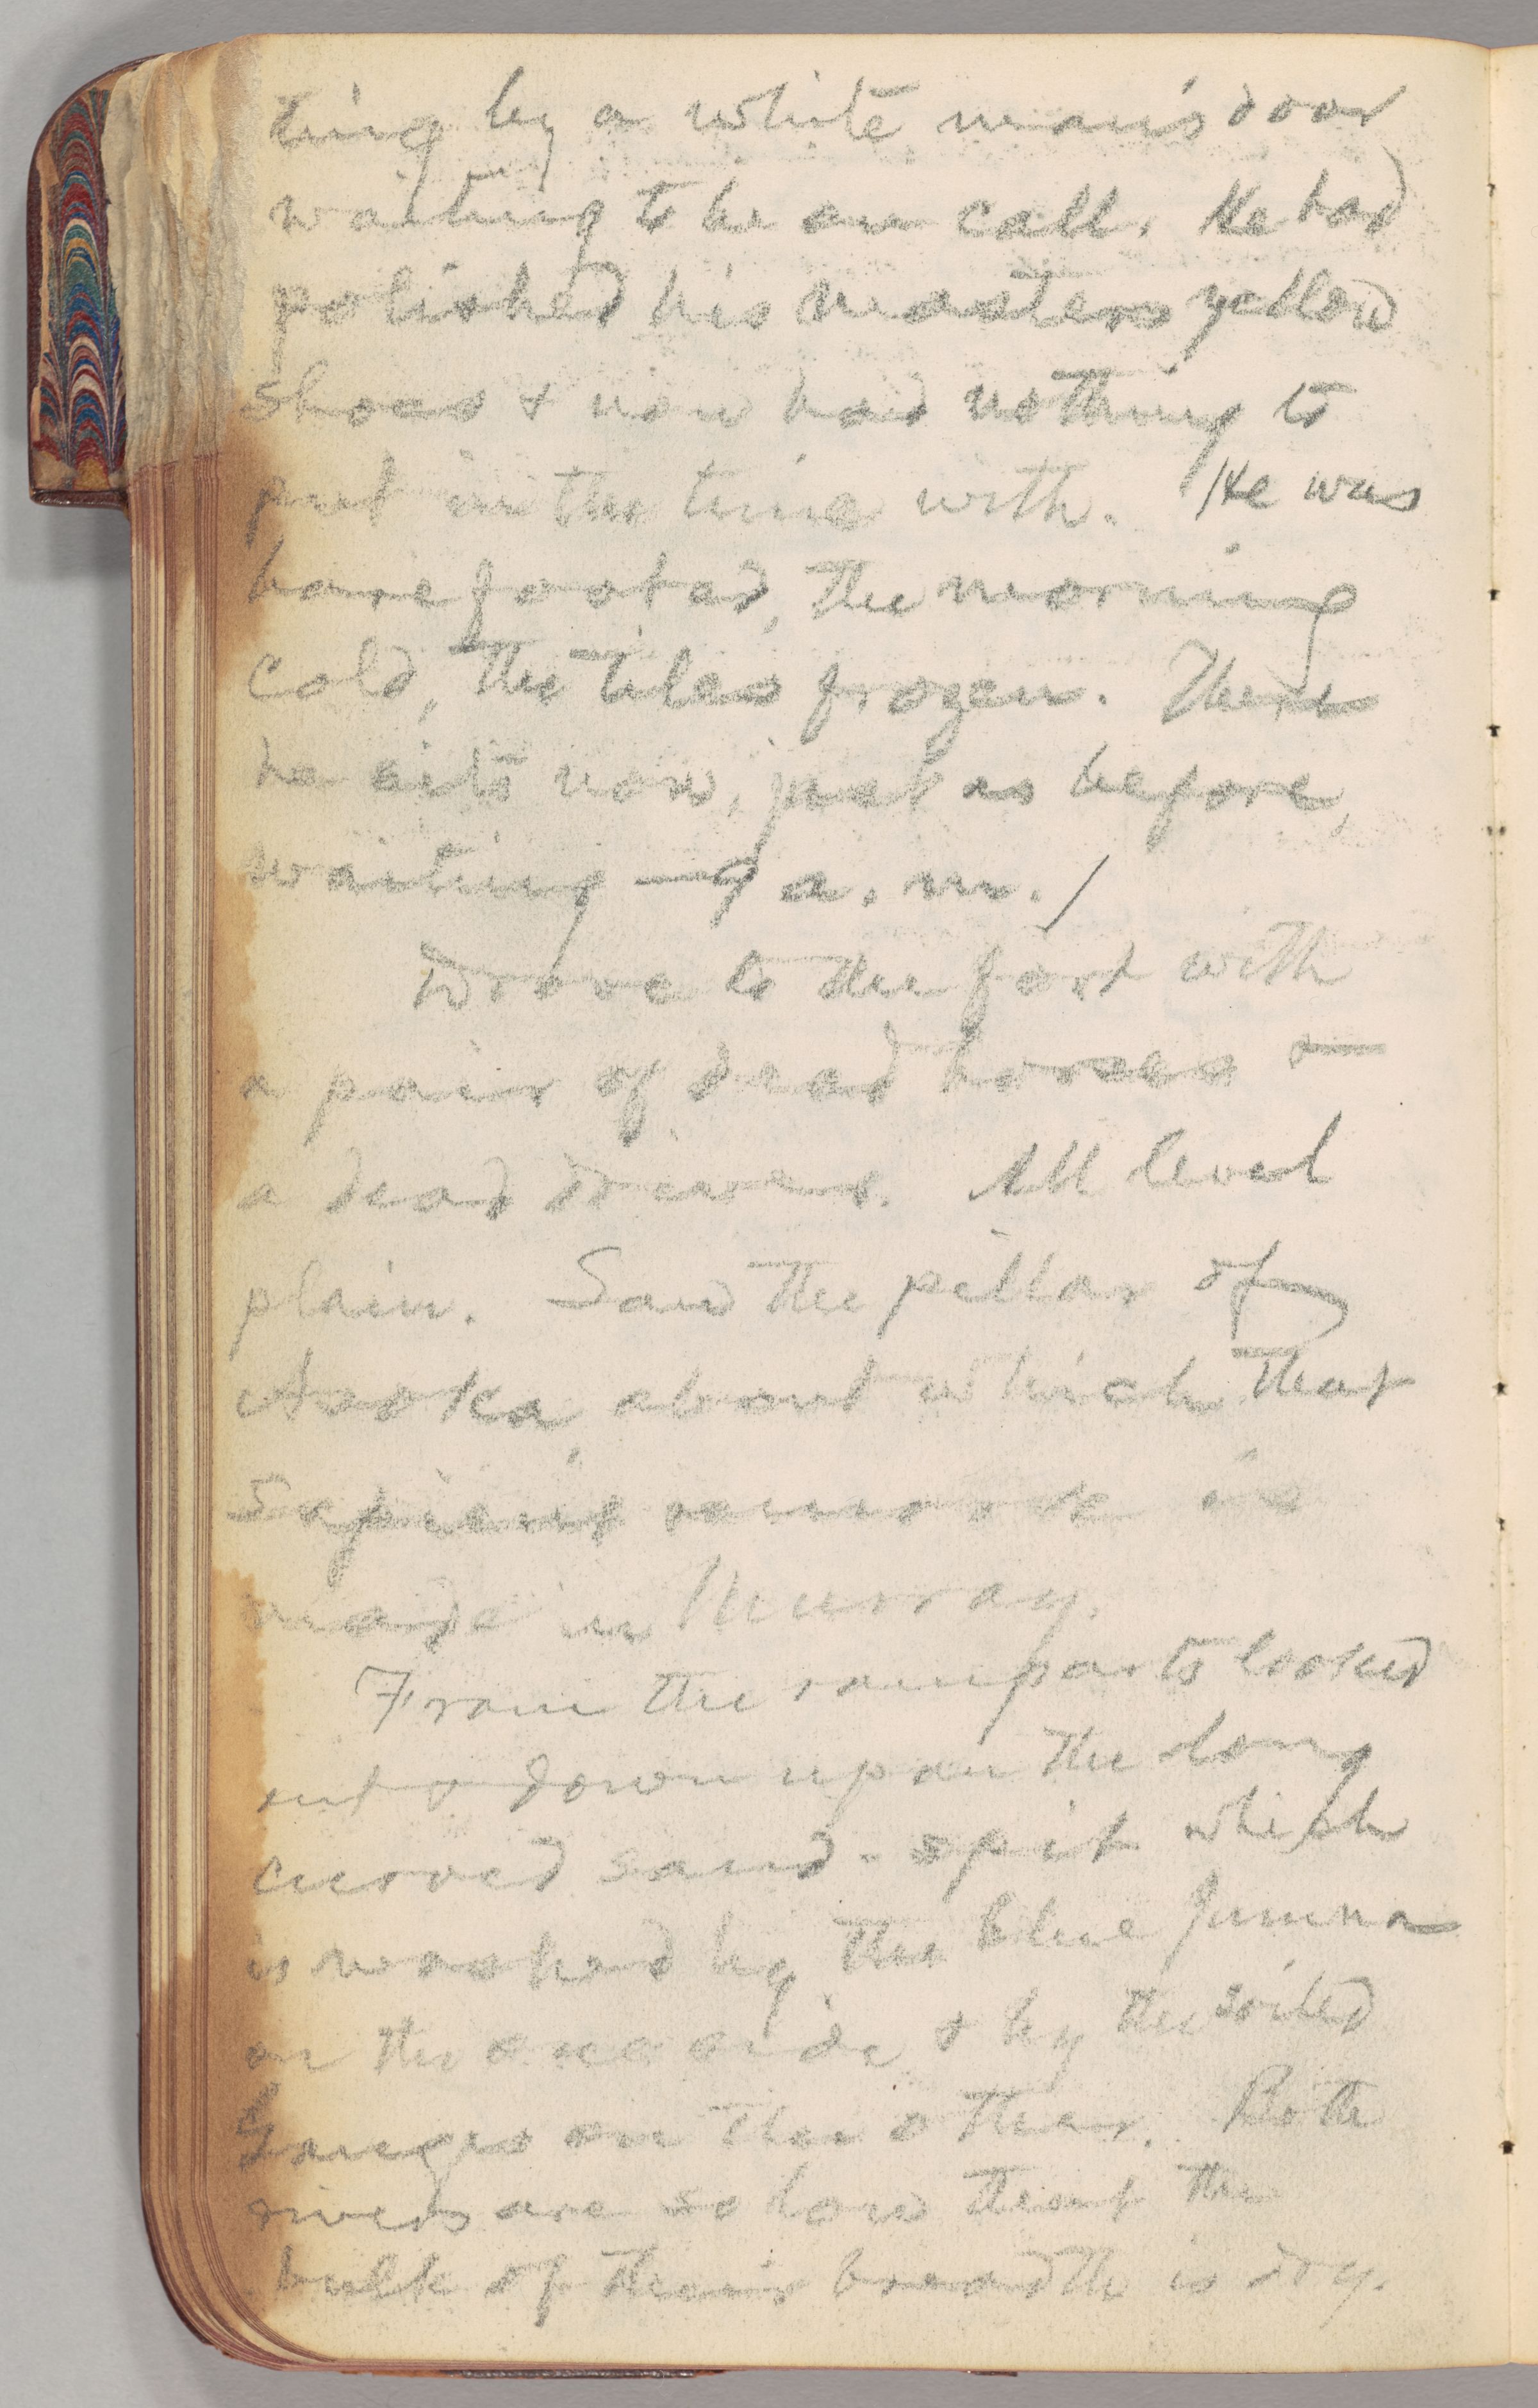 ting by a white man's door
waiting to be on call. He had
polished his masters yellow
shoes & now had nothing to
put in the time with. He was
barefooted, the morning
cold, the tiles frozen. There
he sits now, just as before,
waiting — 9 a. m. /
Drove to the fort with
a pair of dead horses &
a dead driver. All level
plain. Saw the pillar of
Asoka, about which that
sapient remark is
made in Murray.
From the ramparts looked
out & down upon the long
curved sand-spit which
is washed by the blue Jumna
on the one side & by the soiled
Ganges on the other. Both
rivers are so low that the
bulk of their breadth is dry.